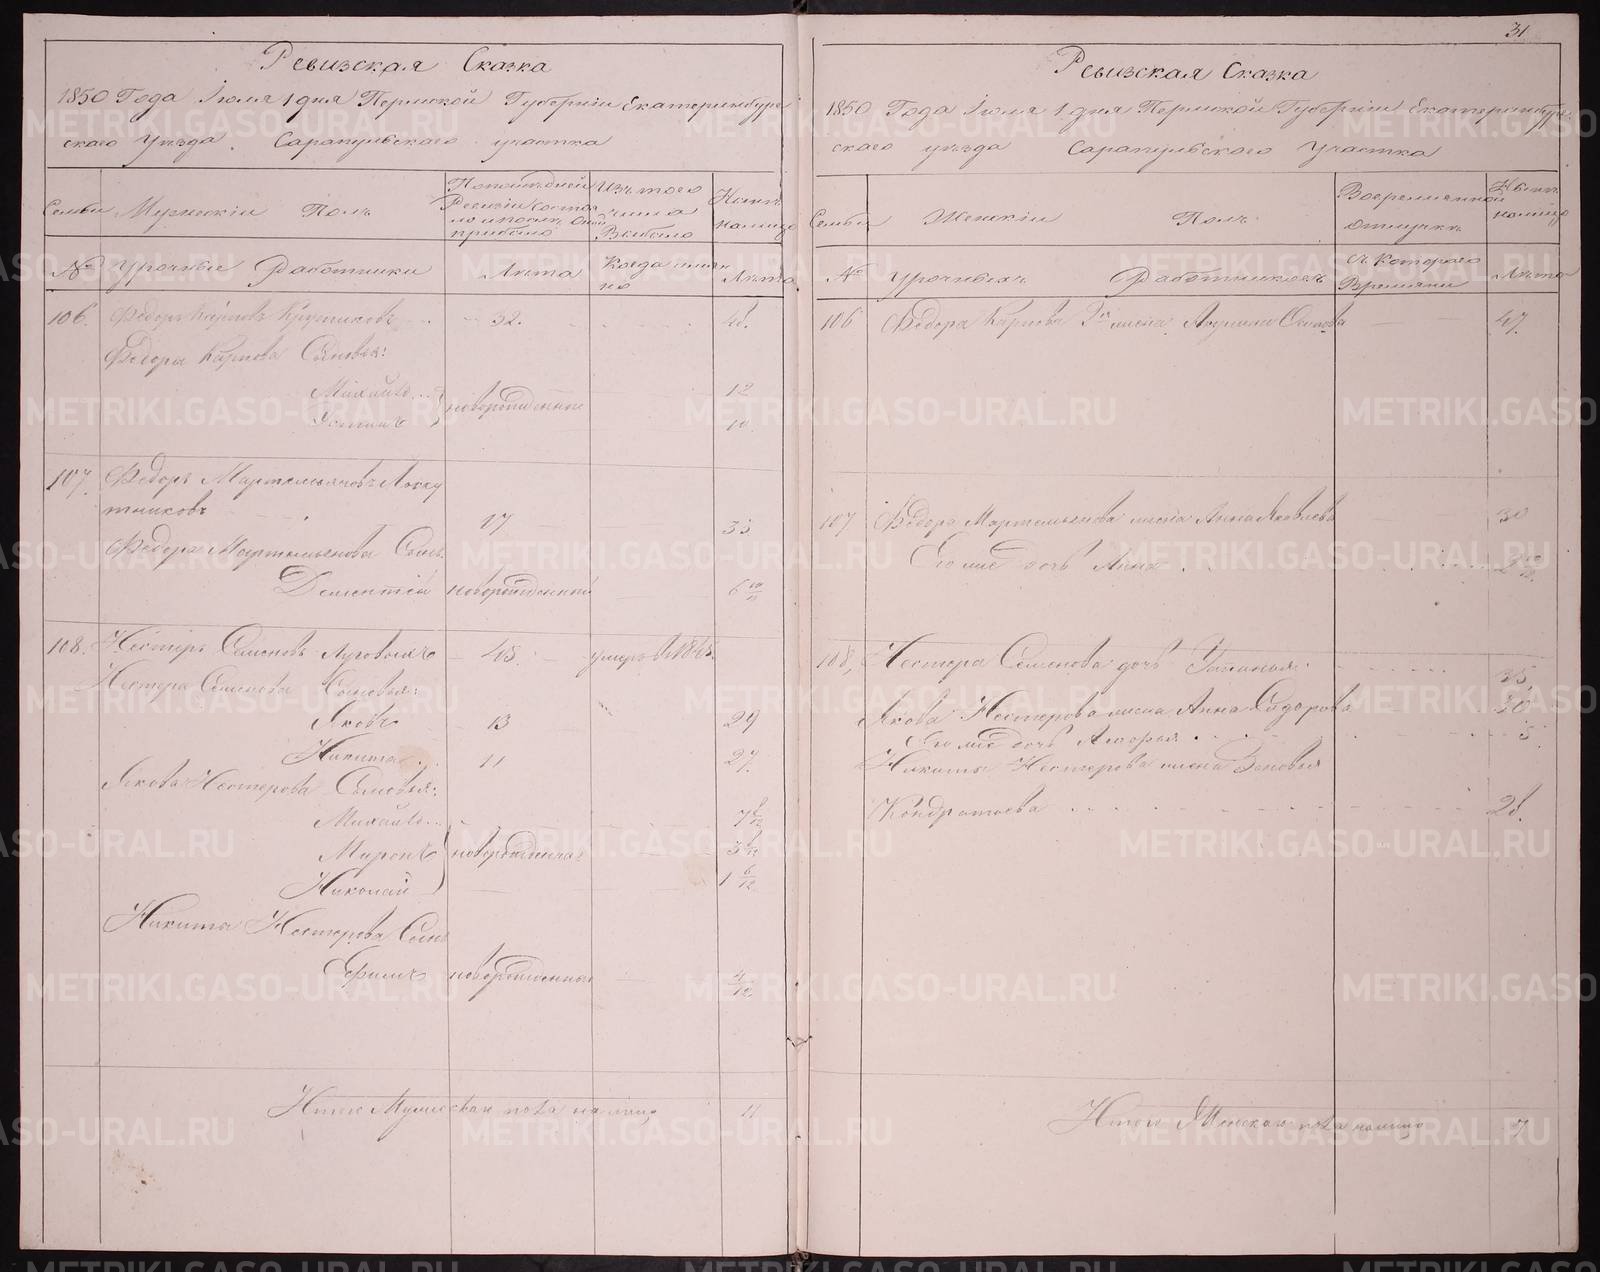 Ревизская Сказка
1850 Года Іюля 1 дня Пермской Губерніи Екатеринбург
скаго Уезда Сарапульскаго участка
Семьи Мужескій Полъ
По последней Ревизіи состояло и после оной прибыло
Изъ того числа Выбыло
Ныне на лицо
№ Урочные Работники Лета Когда именно Лета
106. Федоръ Карповъ Крутиковъ 32.
Федора Карпова Сыновья:
Михайло 12
Устинъ новорожденные 10
107. Федоръ Мартемьяновъ Лоску
тниковъ 17 33
Федора Мартемьянова Сынъ
Дементій новорожденный 6 10/12
108. Нестеръ Семеновъ Луговыхъ умеръ
Нестера Семенова Сыновья:
Яковъ 13 29
Никита 11 27.
Якова Нестерова Сыновья:
Михайло
Миронъ новорожденные
Николай 1 6/12
Никиты Нестерова Сынъ
Ефимъ новорожденный 4/12
Итого Мужеска пола на лицо 11
31
Ревизская Сказка
1850 Года Іюля 1 дня Пермской Губерніи Екатеринбург
скаго уезда Сарапульскаго Участка
Семьи Женскій Полъ
Во временной отлучке
Ныне на лицо
№ Урочныхъ Работниковъ Съ котораго Времяни Лета
106 Федора Карпова жена Осипова 47.
107 Федора Мартемьянова жена Анна Яковлева 30
Его же дочь Анна
108, Нестера Семенова дочь 35
Якова Нестерова жена Анна Сидорова 30
Его же дочь 5
Никиты Нестерова жена Зановья
Кондратьева
Итого Женска пола на лицо 7
METRIKI.GASO-URAL.RU